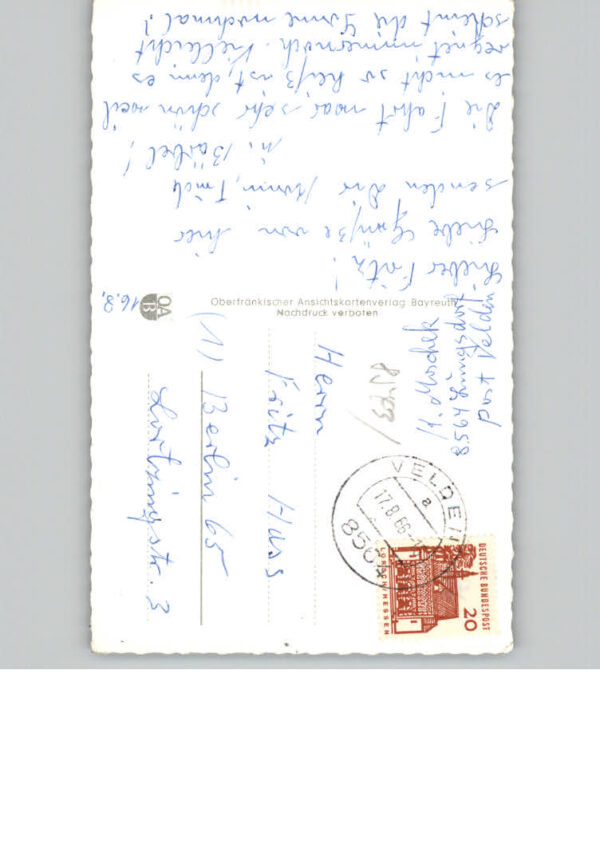 16.8,
Lieber Fritz!
Liebe Grüße von hier
senden Dir
u. Bärbel!
Die Fahrt war sehr schön weil
es nicht so heiß ist, denn es
regnet immernoch. Vielleicht
scheint die Sonne nochmal!
OA
B
Oberfränkischer Ansichtskartenverlag Bayreuth
Nachdruck verboten
8564
Post Velden
Herrn
Fritz Hass
(1) Berlin 65
Lortzingstr. 3
VELDEN
a
17.8.66
8564
DEUTSCHE BUNDESPOST
20
LORSCH/HESSEN